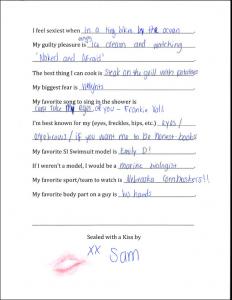 I feel sexiest when in a tiny bikini by the ocean.
My guilty pleasure is eating ice cream and watching
"Naked and Afraid".
The best thing I can cook is steak on the grill with potatoes
My biggest fear is heights.
My favorite song to sing in the shower is
Can't Take My eyes off you - Frankie Valli.
I'm best known for my (eyes, freckles, hips, etc.) eyes /
eyebrows / if you want me to be honest boobs
My favorite SI Swimsuit model is Emily D!
If I weren't a model, I would be a marine biologist.
My favorite sport/team to watch is Nebraska Cornhuskers!!
My favorite body part on a guy is his hands.
Sealed with a Kiss by
XX Sam